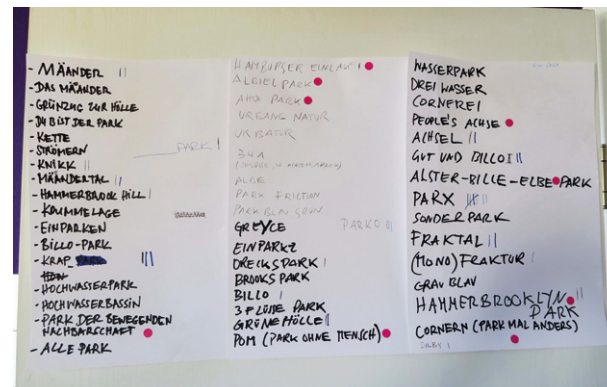 - MÄANDER ||
- DAS MÄANDER
- GRÜNZUG ZUR HÜLLE
- DU BIST DER PARK
- KETTE
- STRÖMERN
- KNIKK ||
- MÄANDERTAL ||
- HAMMERBROOK HILL |
- KRUMMELAGE
- EINPARKEN
- BILLO-PARK
- KRAP_ |||
- HOCHWASSERPARK
- HOCHWASSERBASSIN
- PARK DER BEWEGENDEN
NACHBARSCHAFT
- ALLE PARK
PARK |
HAMBURGER EINLAGE |
PARK
AHOI PARK
URBANE NATUR
URBATUR
PARK FRICTION
PARK BLAU
GREYCE
PARKO ||
EINPARKZ
DRECKSPARK |
BROOKS PARK
BILLO |
3 FLÜSSE PARK
GRÜNE HÖLLE ||
POM (PARK OHNE MENSCH)
WASSERPARK
DREI WASSER
CORNEREI
PEOPLE'S ACHSE
ACHSEL ||
GUT UND BILLO ||
ALSTER-BILLE-ELBE PARK
PARX
SONDERPARK
FRAKTAL ||
(MONO) FRAKTUR |
GRAU BLAU
HAMMERBROOKLYN ||
PARK
CORNERN (PARK MAL ANDERS)